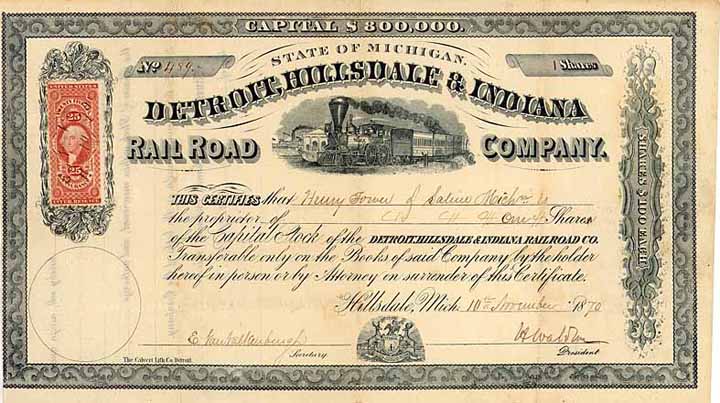 CAPITAL $800,000.
STATE OF MICHIGAN.
No 489.
1 Shares
DETROIT, HILLSDALE & INDIANA
RAIL ROAD COMPANY.
25
25
THIS CERTIFIES that Henry Tower of Saline Mich is
the proprietor of One Shares
of the Capital Stock of the DETROIT, HILLSDALE & INDIANA RAILROAD CO.
Transferable only on the Books of said Company by the holder
hereof in person or by Attorney on surrender of this Certificate.
Hillsdale, Mich. 10th November 1870
E. VanValkenburgh
Secretary
President
The Calvert Lith. Co. Detroit.
SHARES $100 EACH